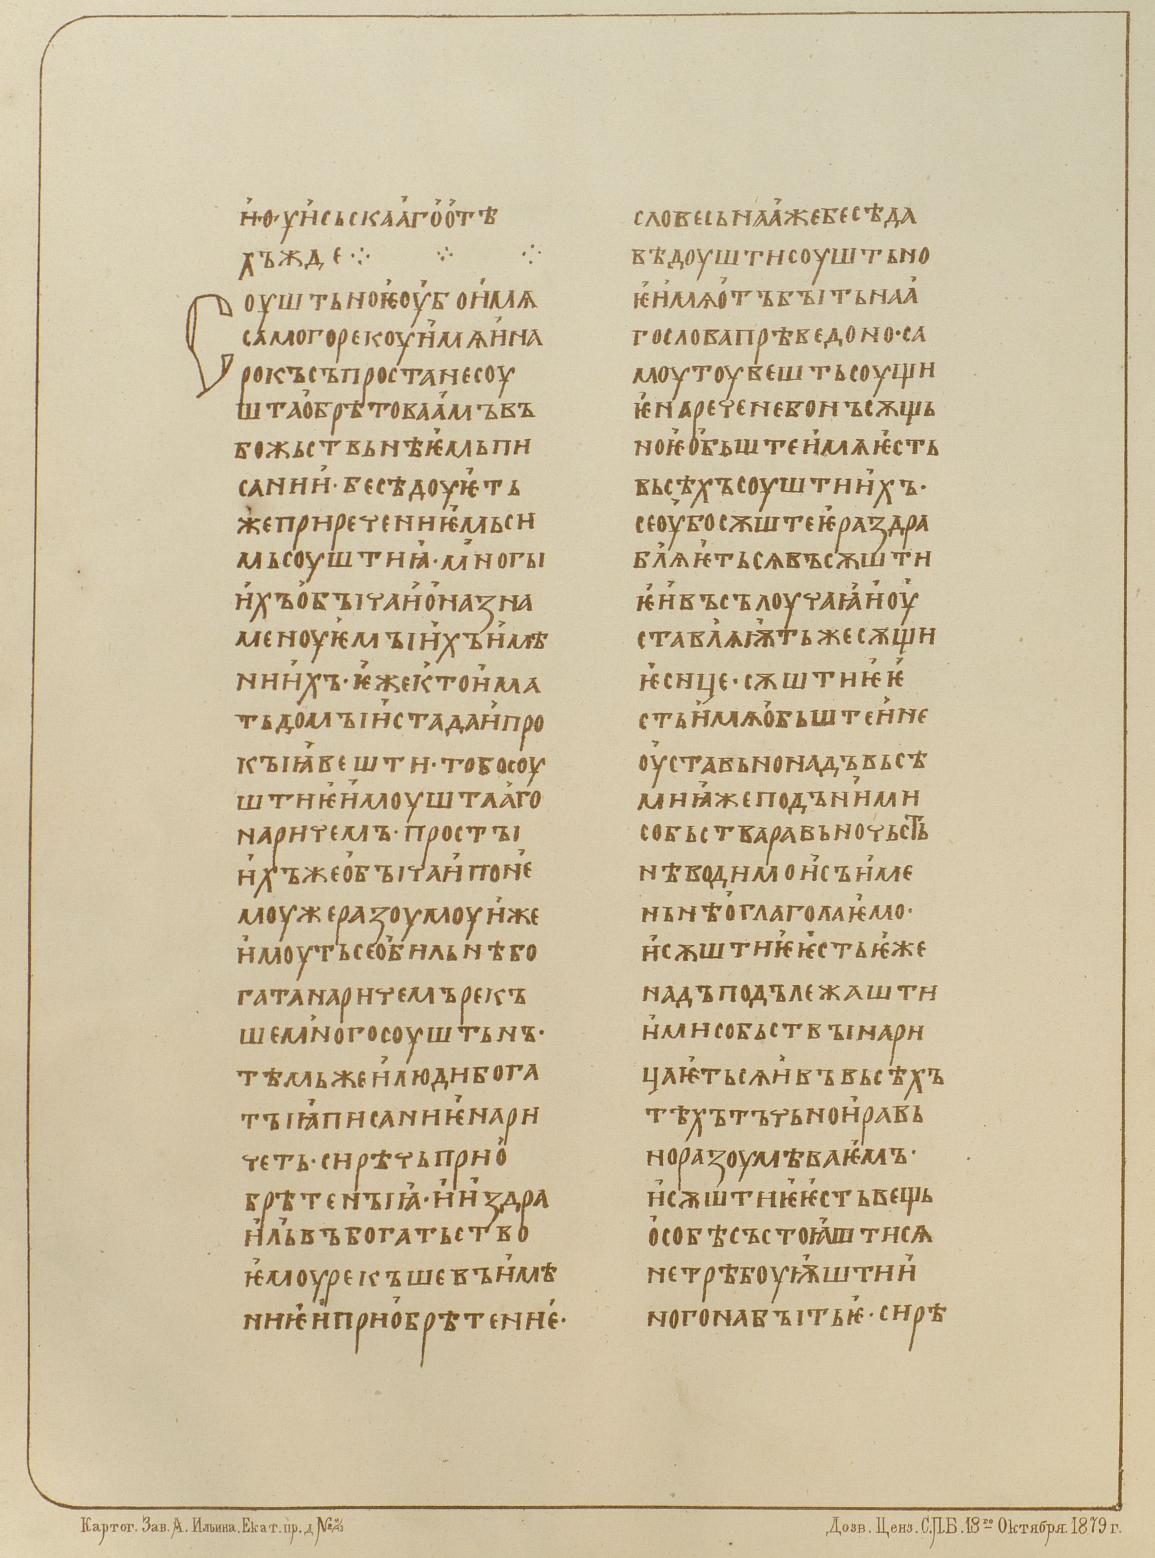 и҆·о·у҆исьскаа҆го҆о҆тѣ
хъжде ⁘ ⁘ ⁘
Соуштьноѥ҆оу҆бои҆мѧ
само го рекоуи҆мѧи҆на
рокъсъпростанесоу
штао҆брѣтоваа҆мъвъ
божьствьнѣѥ҆мьпи
сании҆·бесѣдоуѥ҆ть
жеприречениѥ҆мьси
мьсоуштиꙗ҆·м҆ногы
и҆хъо҆бъічаи҆о҆назна
меноуѥ҆мъіи҆хъи҆мѣ
нии҆хъ·ѥ҆жек҆тои҆ма
тьдомъіи҆стадаи҆про
къіꙗ҆вешти·тобосоу
штиѥ҆и҆моуштаа҆го
наричемъ·простъі
и҆хъжео҆бъічаи҆поне҆
моужеразоумоуи҆же
и҆моутьсео҆бильнѣбо
гатанаричемърекъ
шем҆ногосоуштьнъ·
тѣмьжеи҆людибога
тъіꙗ҆писаниѥ҆нари
четь·сирѣчьприо҆
брѣтенъіꙗ҆·и҆и҆здра
и҆л҆ьвъбогатьство
ѥ҆моурекъшевъи҆мѣ
ниѥ҆и҆прио҆брѣтение҆·
словесьнаа҆жебесѣда
вѣдоуштисоуштьно
ѥ҆и҆мѧо҆тъбъітьнаа҆
гословапрѣведоно·са
моутоувештьсоущи
ѥ҆нареченебонъсѫщь
ноѥ҆о҆бьштеи҆мѧѥ҆сть
вьсѣхъсоуштии҆хъ·
сеоу҆босѫштеѥ҆раздра
бл҆ѧѥ҆тьсѧвъсѫшти
ѥ҆и҆въсълоучаꙗ҆и҆оу҆
ставл҆ѧѭ҆тьжесѫщи
ѥ҆сице·сѫштиѥ҆ѥ҆
стьи҆мѧо҆бьштеи҆не
оу҆ставьнонадъвьсѣ
миꙗ҆жеподъни҆ми
собьствьравьночьсть
нѣводимои҆съи҆ме
ньнѣо҆глаголаѥ҆мо·
и҆сѫштиѥ҆ѥ҆стьѥ҆же
надъподълежашти
и҆мисобьствъінари
цаѥ҆тьсѧи҆въвьсѣхъ
тѣхътъчьнои҆равь
норазоумѣваѥ҆мъ·
и҆сѫштиѥ҆ѥ҆стьвещь
о҆собѣсъстоꙗ҆штисѧ
нетрѣбоуѭ҆штии҆
ногонабъітьѥ҆·сирѣ
Картог. Зав. А. Ильина. Екат. пр. д №
Дозв. Ценз. С.П.Б. 18го Октября. 1879 г.